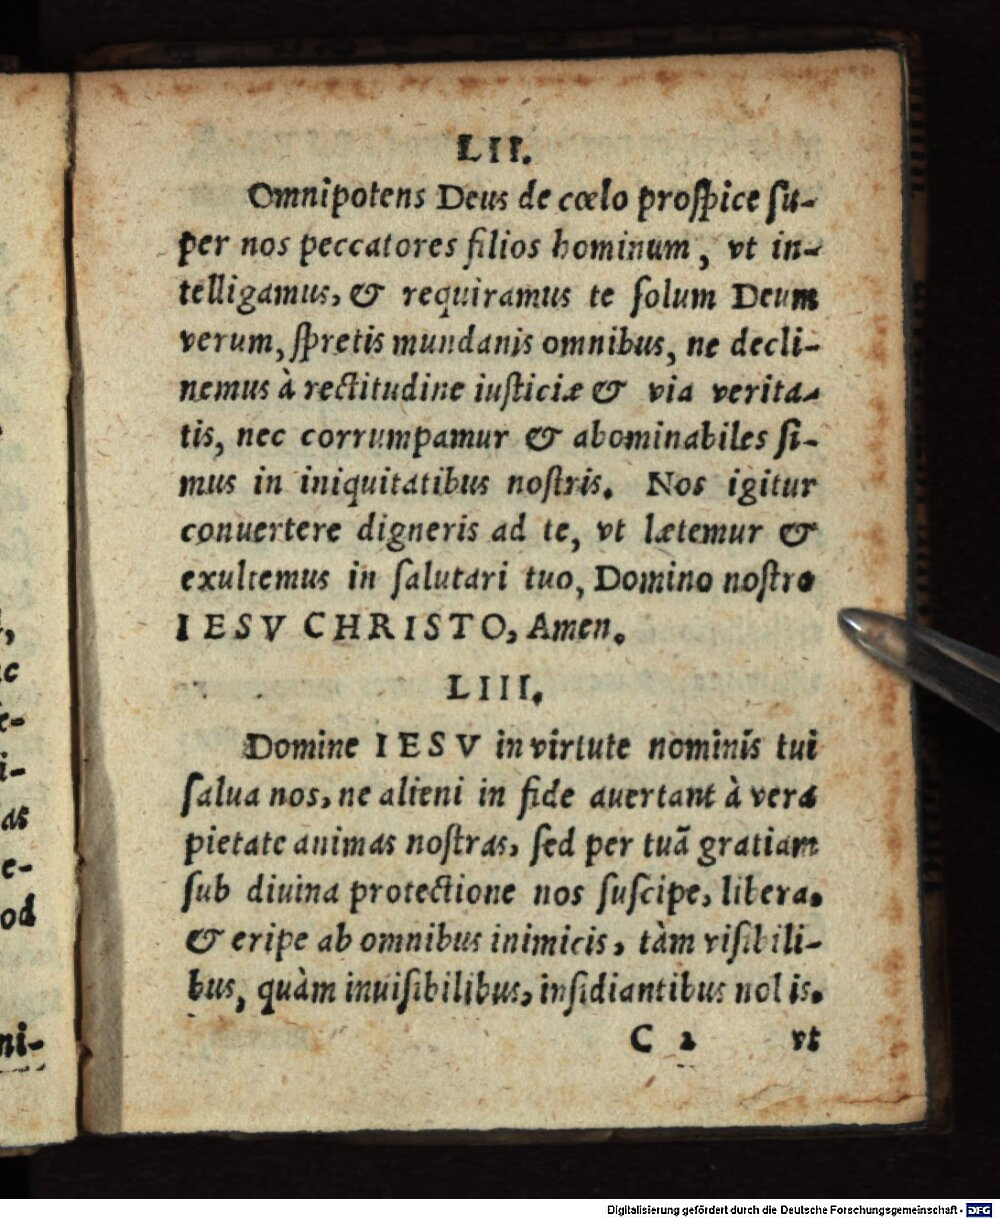 LII.
Omnipotens Deus de cœlo proſpice ſu-
per nos peccatores filios hominum, vt in-
telligamus, & requiramus te ſolum Deum
verum, ſpretis mundanis omnibus, ne decli-
nemus à rectitudine iuſticiæ & via verita-
tis, nec corrumpamur & abominabiles ſi-
mus in iniquitatibus noſtris. Nos igitur
conuertere digneris ad te, vt lætemur &
exultemus in ſalutari tuo, Domino noſtro
IESV CHRISTO, Amen.
LIII.
Domine IESV in virtute nominis tui
ſalua nos, ne alieni in fide auertant à vera
pietate animas noſtras, ſed per tuã gratiam
ſub diuina protectione nos ſuſcipe, libera,
& eripe ab omnibus inimicis, tàm viſibili-
bus, quàm inuiſibilibus, inſidiantibus nobis.
C 2 vt
as
od
ni-
Digitalisierung gefördert durch die Deutsche Forschungsgemeinschaft - DFG